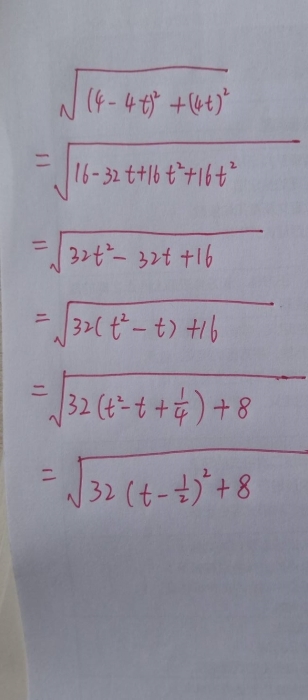 √((4-4t)²+(4t)²)
=√(16-32t+16t²+16t²)
=√(32t²-32t+16)
=√(32(t²-t)+16)
=√(32(t²-t+1/4)+8)
=√(32(t-1/2)²+8)